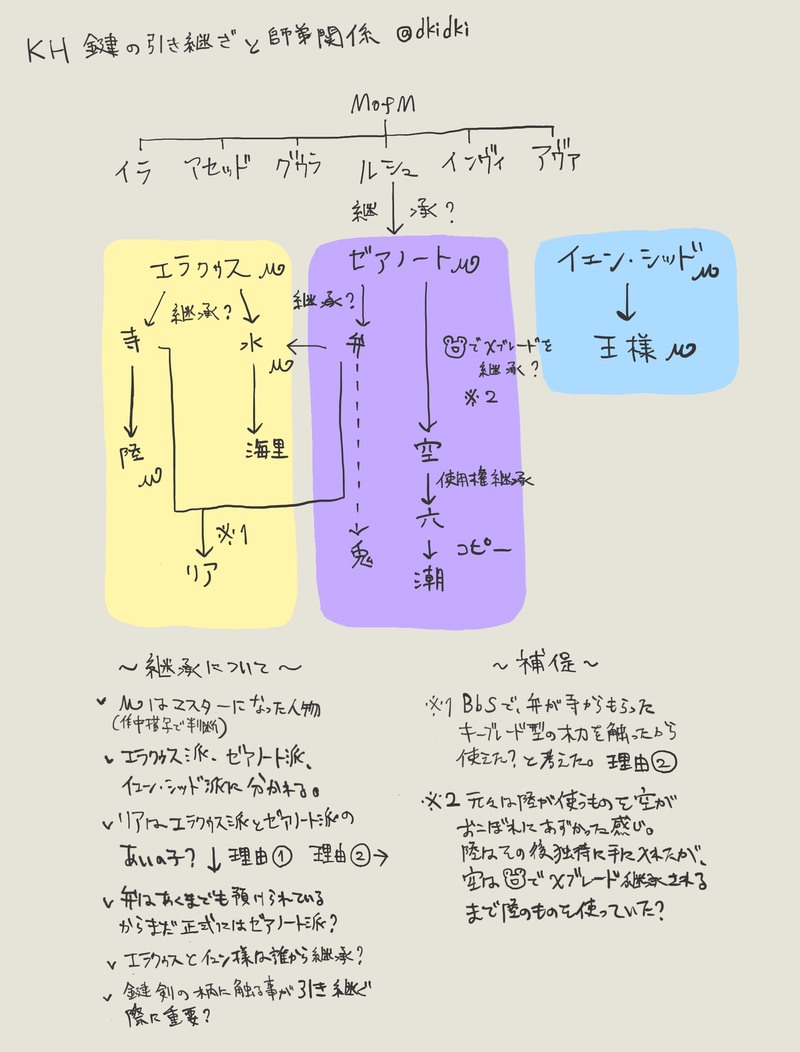 KH 鍵の引き継ぎと師弟関係 @dkidki
MofM
イラ アセッド グウラ ルシュ インヴィ アヴァ
継承?
エラクゥス M
継承?
寺
水 M
陸 M
海里
※1
リア
ゼアノート M
継承?
弁
🐭でχブレードを
継承?
※2
空
使用権継承
六
コピー
潮
鬼
イェン・シッド M
王様 M
〜継承について〜
✓ Mはマスターになった人物
(作中描写で判断)
✓ エラクゥス派、ゼアノート派、
イェン・シッド派に分かれる。
✓ リアはエラクゥス派とゼアノート派の
あいの子? ↓理由① 理由②→
✓ 弁はあくまでも預けられている
からまだ正式にはゼアノート派?
✓ エラクゥスとイェン様は誰から継承?
✓ 鍵剣の柄に触る事が引き継ぐ
際に重要?
〜補足〜
※1 BbSで、弁が寺からもらった
キーブレード型の木刀を触ったから
使えた?と考えた。理由②
※2 元々は陸が使うものを空が
おこぼれにあずかった感じ。
陸はその後独特に手に入れたが、
空は🐭でχブレード継承される
まで陸のものを使っていた?